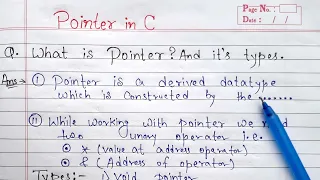 Pointer in C
Page No.
Date : / /
Q. What is Pointer? And it's types.
Ans→ (i) Pointer is a derived datatype
which is constructed by the .......
(ii) While working with pointer we need
two unary operator i.e.
* (value at address operator)
& (Address of operator)
Types:- i) Void pointer